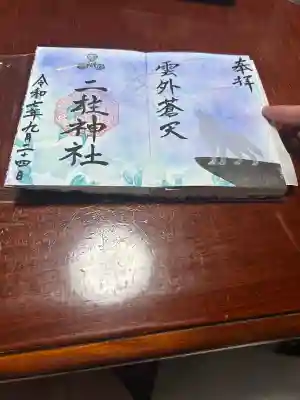 奉拝
雲外蒼天
二柱神社
令和七年九月二十四日